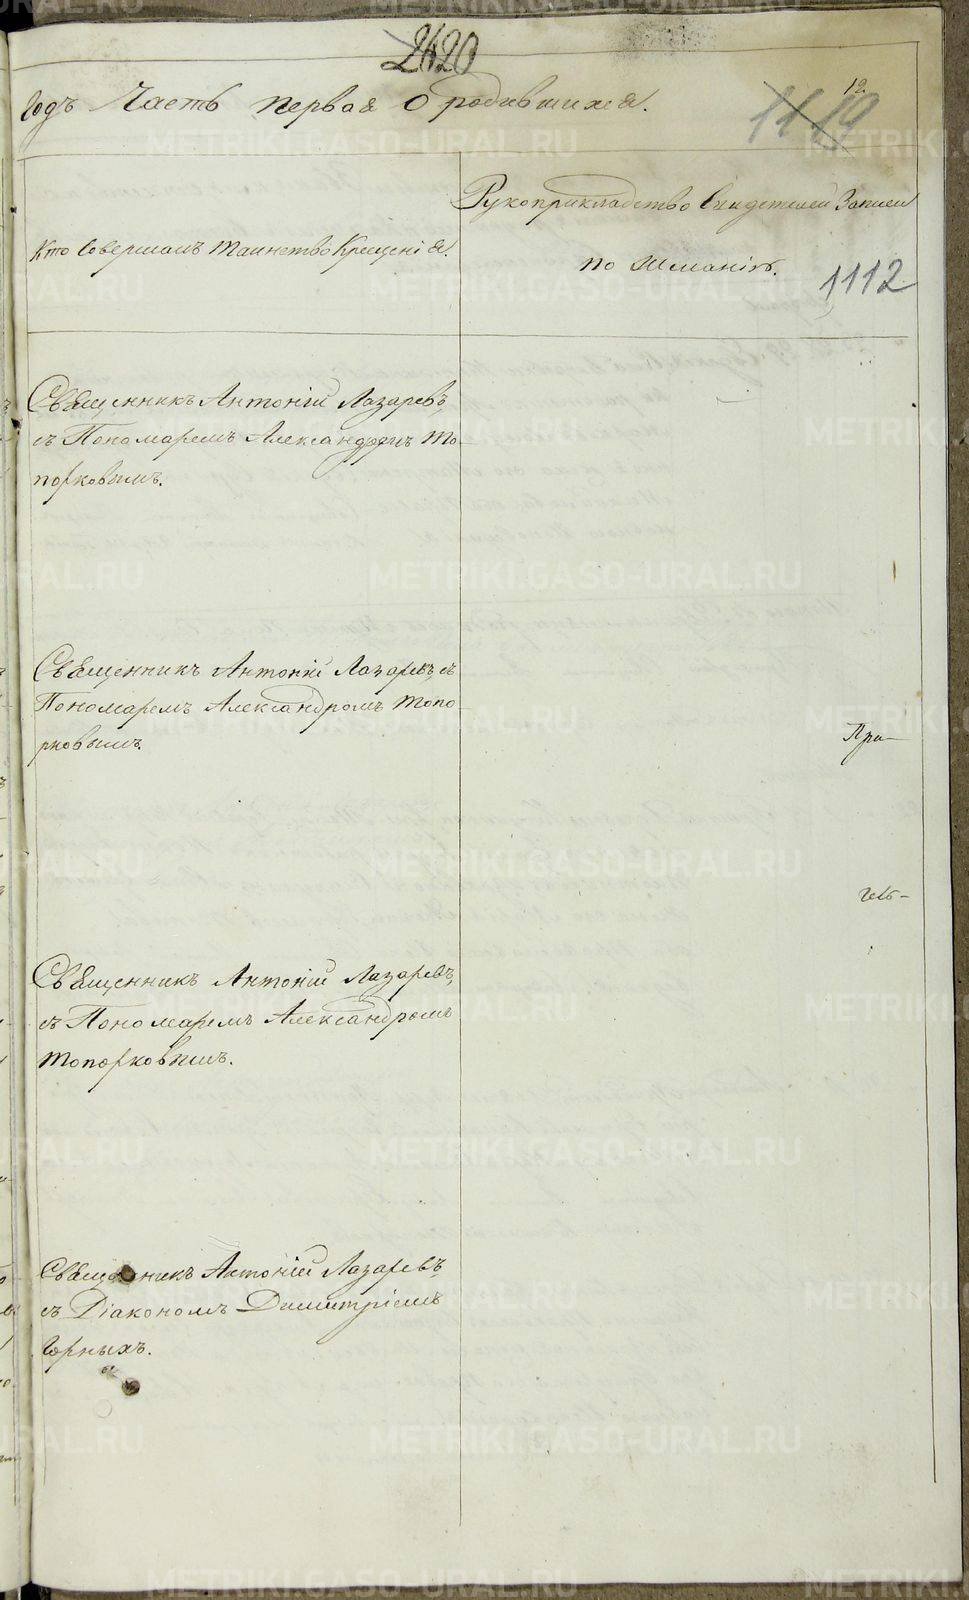 2620
12.
годъ Часть первая О родившихся.
1119
Кто Совершалъ таинство Крещенія.
Рукоприкладство Свидетелей Записи
по Желанію.
1112
Священникъ Антоній Лазаревъ,
съ Пономаремъ Александромъ То-
порковымъ.
Священникъ Антоній Лазаревъ, съ
Пономаремъ Александромъ Топо-
рковымъ.
При-
Священникъ Антоній Лазаревъ,
съ Пономаремъ Александромъ
Топорковымъ.
Священникъ Антоній Лазаревъ,
съ Діакономъ Димитріемъ
Горныхъ.
METRIKI.GASO-URAL.RU